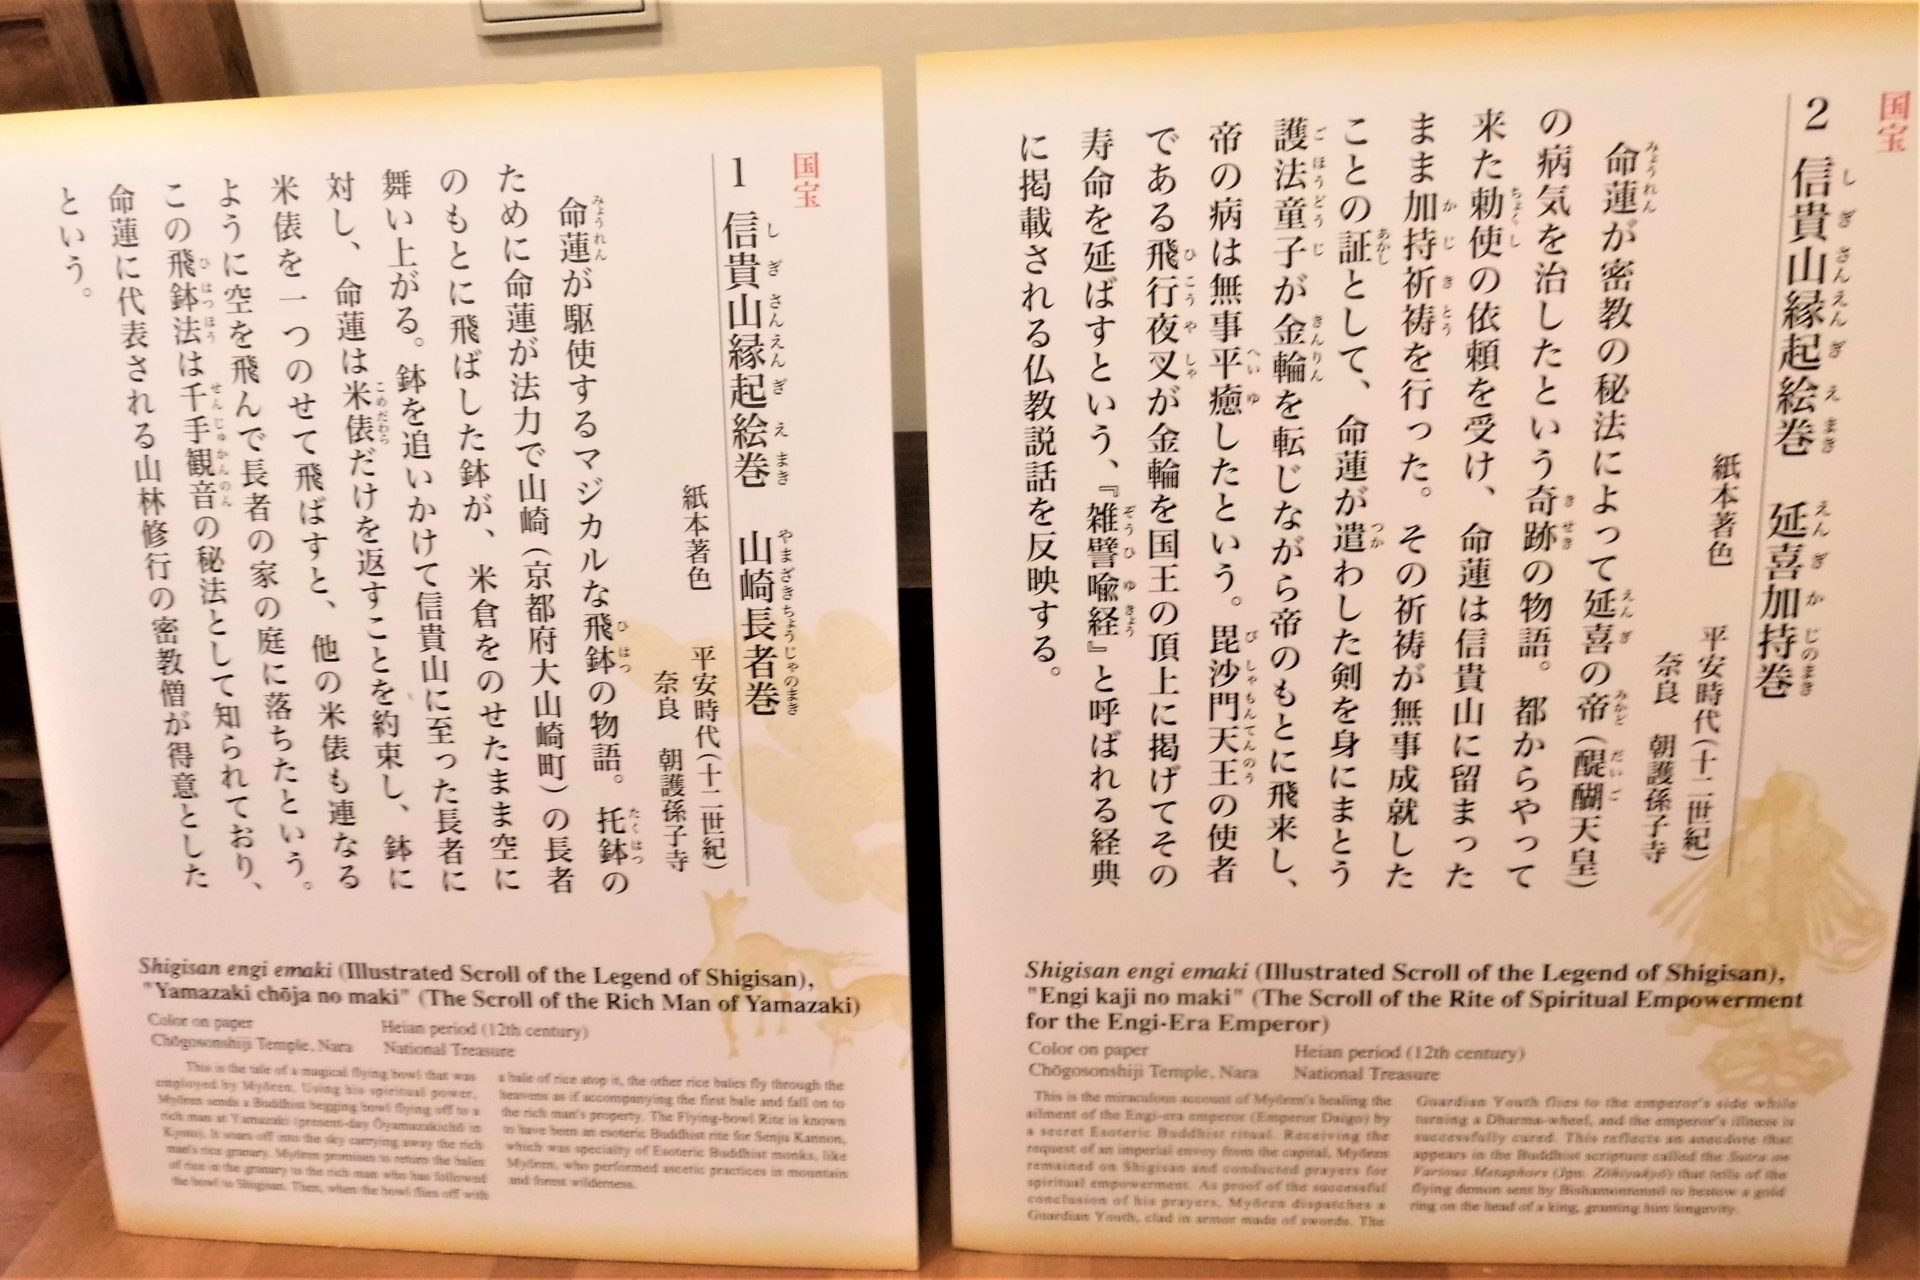 国宝
1 信貴山縁起絵巻 山崎長者巻
しぎさんえんぎえまき やまざきちょうじゃのまき
紙本著色
平安時代(十二世紀)
奈良 朝護孫子寺
命蓮が駆使するマジカルな飛鉢の物語。托鉢の
みょうれん ひはつ たくはつ
ために命蓮が法力で山崎(京都府大山崎町)の長者
のもとに飛ばした鉢が、米倉をのせたまま空に
舞い上がる。鉢を追いかけて信貴山に至った長者に
対し、命蓮は米俵だけを返すことを約束し、鉢に
こめだわら
米俵を一つのせて飛ばすと、他の米俵も連なる
ように空を飛んで長者の家の庭に落ちたという。
この飛鉢法は千手観音の秘法として知られており、
ひはつほう せんじゅかんのん
命蓮に代表される山林修行の密教僧が得意とした
という。
Shigisan engi emaki (Illustrated Scroll of the Legend of Shigisan),
"Yamazaki chōja no maki" (The Scroll of the Rich Man of Yamazaki)
Color on paper
Chōgosonshiji Temple, Nara
Heian period (12th century)
National Treasure
This is the tale of a magical flying bowl that was
employed by Myōren. Using his spiritual power,
Myōren sends a Buddhist begging bowl flying off to a
rich man at Yamazaki (present-day Ōyamazakichō in
Kyoto). It soars off into the sky carrying away the rich
man's rice granary. Myōren promises to return the bales
of rice in the granary to the rich man who has followed
the bowl to Shigisan. Then, when the bowl flies off with
a bale of rice atop it, the other rice bales fly through the
heavens as if accompanying the first bale and fall on to
the rich man's property. The Flying-bowl Rite is known
to have been an esoteric Buddhist rite for Senju Kannon,
which was specialty of Esoteric Buddhist monks, like
Myōren, who performed ascetic practices in mountain
and forest wilderness.
国宝
2 信貴山縁起絵巻 延喜加持巻
しぎさんえんぎえまき えんぎかじのまき
紙本著色
平安時代(十二世紀)
奈良 朝護孫子寺
命蓮が密教の秘法によって延喜の帝(醍醐天皇)
みょうれん えんぎ みかど だいご
の病気を治したという奇跡の物語。都からやって
きせき
来た勅使の依頼を受け、命蓮は信貴山に留まった
ちょくし
まま加持祈祷を行った。その祈祷が無事成就した
かじきとう
ことの証として、命蓮が遣わした剣を身にまとう
あかし つか
護法童子が金輪を転じながら帝のもとに飛来し、
ごほうどうじ きんりん
帝の病は無事平癒したという。毘沙門天王の使者
へいゆ びしゃもんてんのう
である飛行夜叉が金輪を国王の頂上に掲げてその
ひこうやしゃ
寿命を延ばすという、『雑譬喩経』と呼ばれる経典
ぞうひゆきょう
に掲載される仏教説話を反映する。
Shigisan engi emaki (Illustrated Scroll of the Legend of Shigisan),
"Engi kaji no maki" (The Scroll of the Rite of Spiritual Empowerment
for the Engi-Era Emperor)
Color on paper
Chōgosonshiji Temple, Nara
Heian period (12th century)
National Treasure
This is the miraculous account of Myōren's healing the
ailment of the Engi-era emperor (Emperor Daigo) by
a secret Esoteric Buddhist ritual. Receiving the
request of an imperial envoy from the capital, Myōren
remained on Shigisan and conducted prayers for
spiritual empowerment. As proof of the successful
conclusion of his prayers, Myōren dispatches a
Guardian Youth, clad in armor made of swords. The
Guardian Youth flies to the emperor's side while
turning a Dharma-wheel, and the emperor's illness is
successfully cured. This reflects an anecdote that
appears in the Buddhist scripture called the Sutra on
Various Metaphors (Jpn. Zōhiyukyō) that tells of the
flying demon sent by Bishamontennō to bestow a gold
ring on the head of a king, granting him longevity.